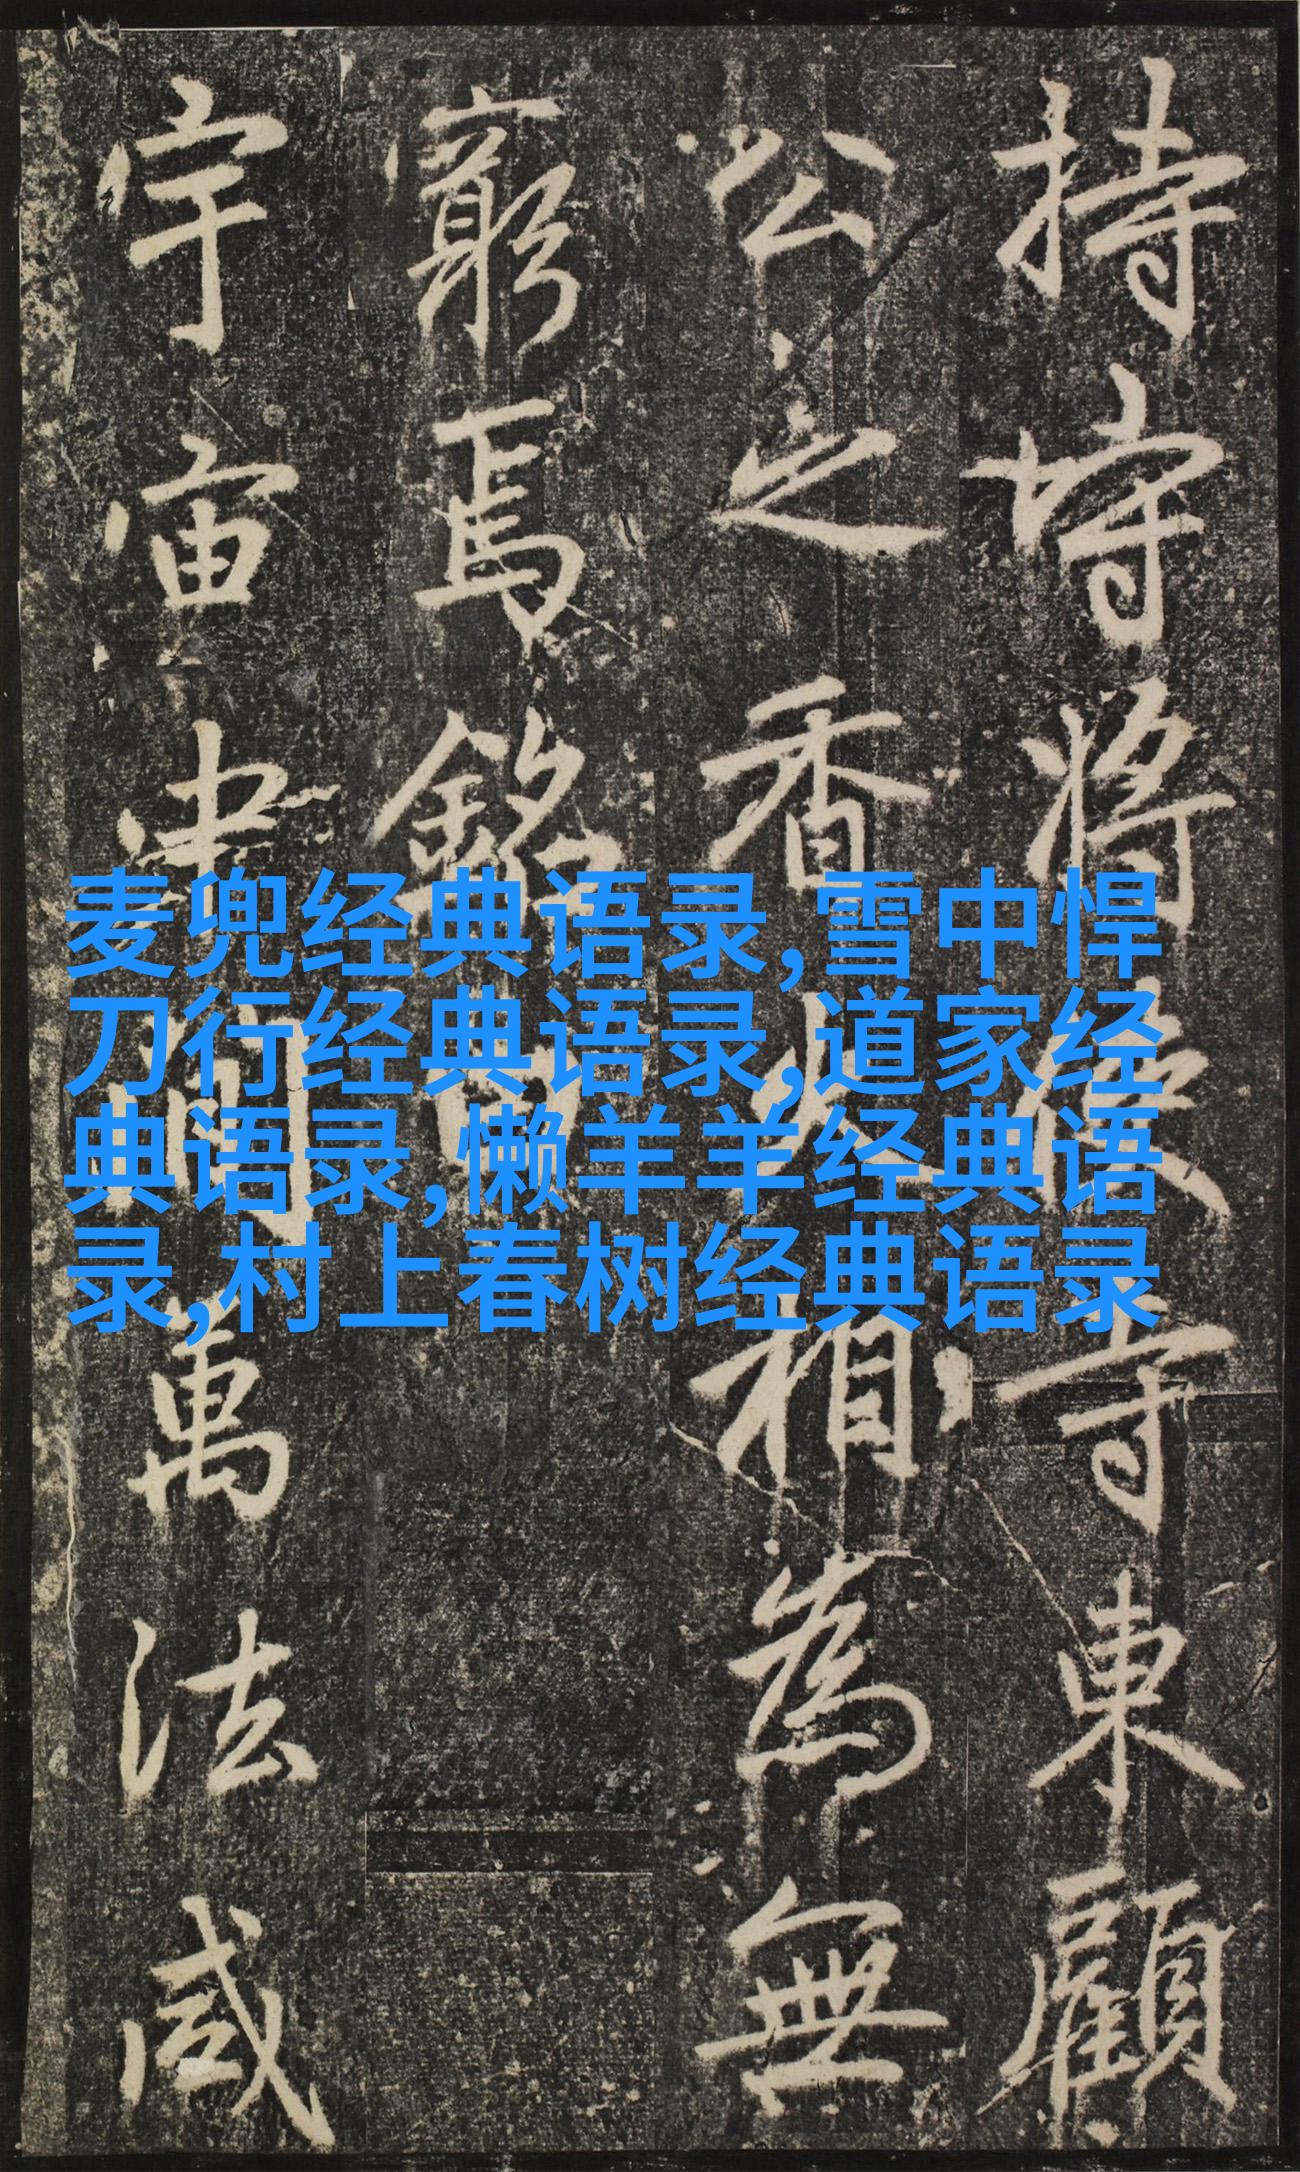 持將寺東顧
公之香火相為無
窮焉銘曰
宇宙間萬法咸
麦兜经典语录,雪中悍
刀行经典语录,道家经
典语录,懒羊羊经典语
录,村上春树经典语录